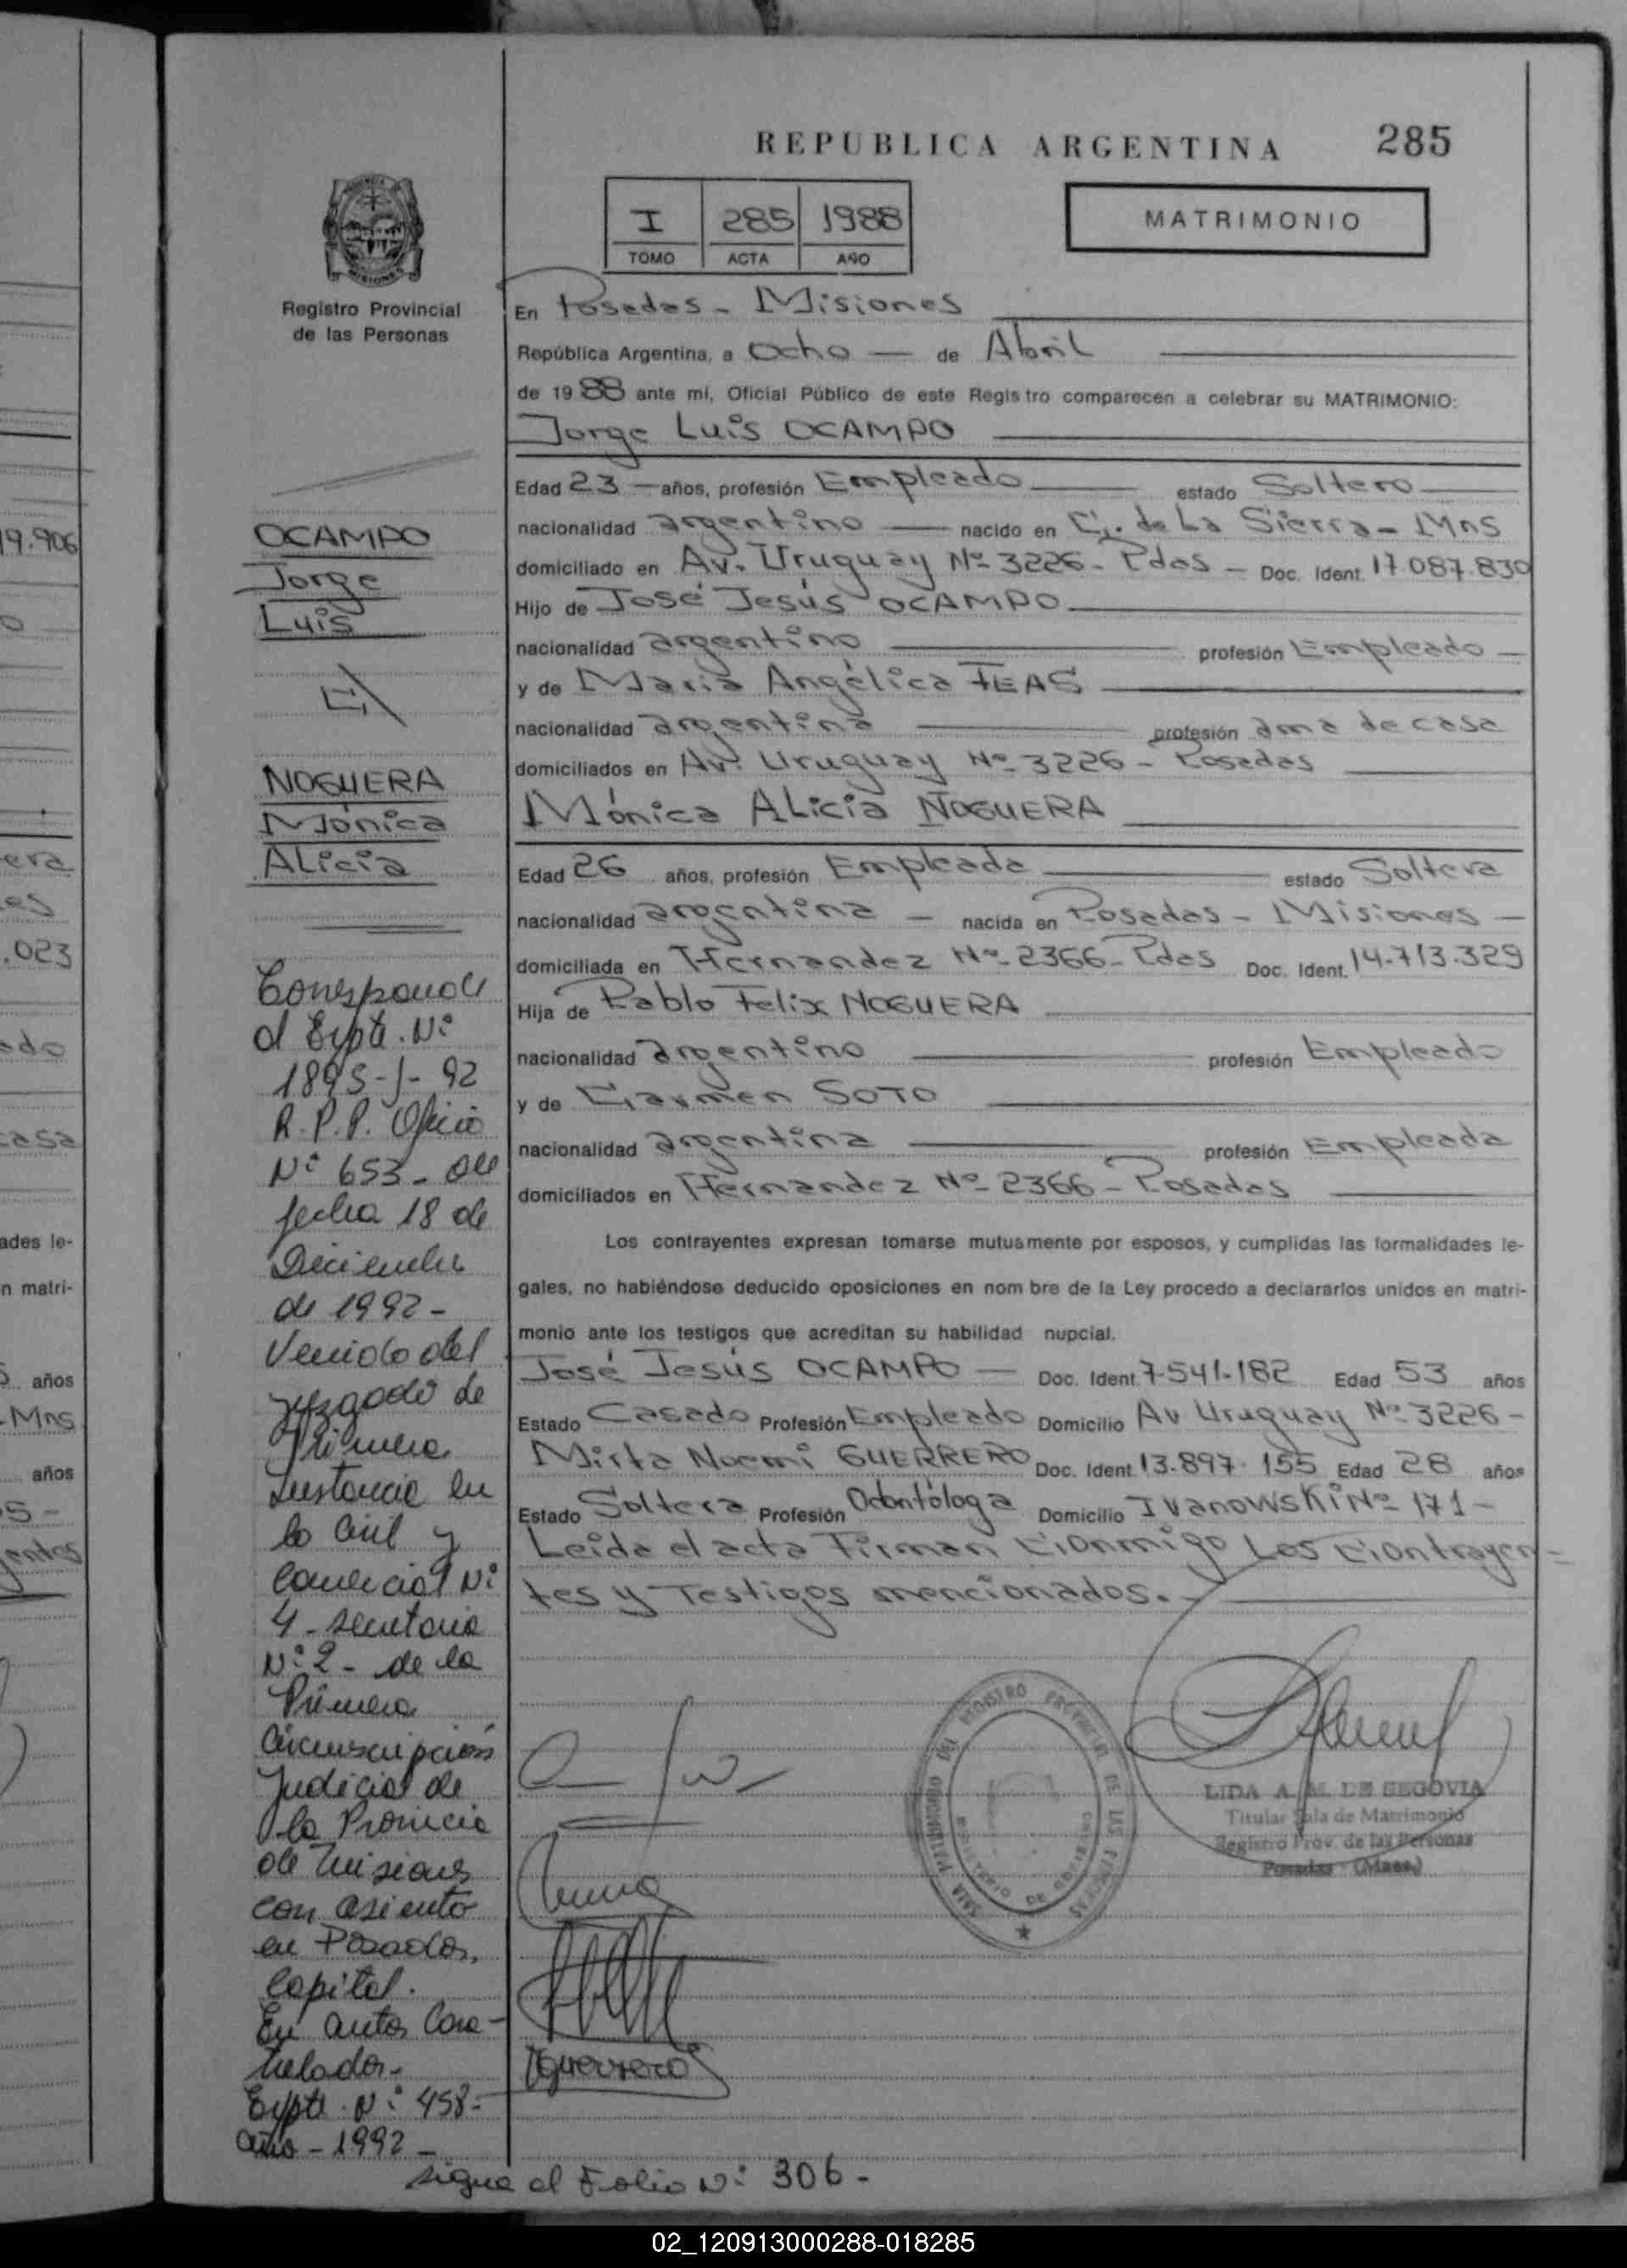 REPUBLICA ARGENTINA 285
I 285 1988
TOMO ACTA AÑO
MATRIMONIO
Registro Provincial
de las Personas
En Posadas - Misiones
República Argentina, a Ocho de Abril
de 1988 ante mí, Oficial Público de este Registro comparecen a celebrar su MATRIMONIO:
Jorge Luis OCAMPO
Edad 23 años, profesión Empleado estado Soltero
nacionalidad argentino nacido en C. de La Sierra - Mns
domiciliado en Av. Uruguay Nº 3226 - Pdas - Doc. Ident. 17.087.830
Hijo de José Jesús OCAMPO
nacionalidad argentino profesión Empleado
y de María Angélica FEAS
nacionalidad argentina profesión ama de casa
domiciliados en Av. Uruguay Nº 3226 - Posadas
Mónica ALicia NOGUERA
Edad 26 años, profesión Empleada estado Soltera
nacionalidad argentina - nacida en Posadas - Misiones -
domiciliada en Hernandez Nº 2366 - Pdas Doc. Ident. 14.713.329
Hija de Pablo Felix NOGUERA
nacionalidad argentino profesión Empleado
y de Carmen SOTO
nacionalidad argentina profesión Empleada
domiciliados en Hernandez Nº 2366 - Posadas
Los contrayentes expresan tomarse mutuamente por esposos, y cumplidas las formalidades le-
gales, no habiéndose deducido oposiciones en nombre de la Ley procedo a declararlos unidos en matri-
monio ante los testigos que acreditan su habilidad nupcial.
José Jesús OCAMPO - Doc. Ident. 7.541.182 Edad 53 años
Estado Casado Profesión Empleado Domicilio Av Uruguay Nº 3226 -
Mirta Noemi GUERRERO Doc. Ident. 13.897.155 Edad 28 años
Estado Soltera Profesión Odontóloga Domicilio Ivanowski Nº 171 -
Leida el acta Firman Conmigo Los Contrayen-
tes y Testigos mencionados. -
LIDA A. M. DE SEGOVIA
Titular Sala de Matrimonio
Registro Prov. de las Personas
Posadas (Mnes.)
SALA MATRIMONIO DEL REGISTRO PROVINCIAL DE LAS PERSONAS
MINISTERIO DE GOBIERNO
guerrero
OCAMPO
Jorge
Luis
NOGUERA
Mónica
ALicia
Corresponde
al Expte. Nº
1895-J-92
R.P.P. Oficio
Nº 653 - de
fecha 18 de
Diciembre
de 1992 -
Venido del
Juzgado de
Primera
Instancia en
lo Civil y
Comercial Nº
4 - secretaria
Nº 2 - de la
Primera
Circunscripción
Judicial de
la Provincia
de Misiones
con asiento
en Posadas,
Capital.
En autos Cara-
tulados -
Expte. Nº 458 -
año - 1992 -
sigue al Folio Nº 306 -
19.906
era
es
.023
ado
casa
ades le-
n matri-
años
- Mns
años
5 -
entes
02_120913000288-018285